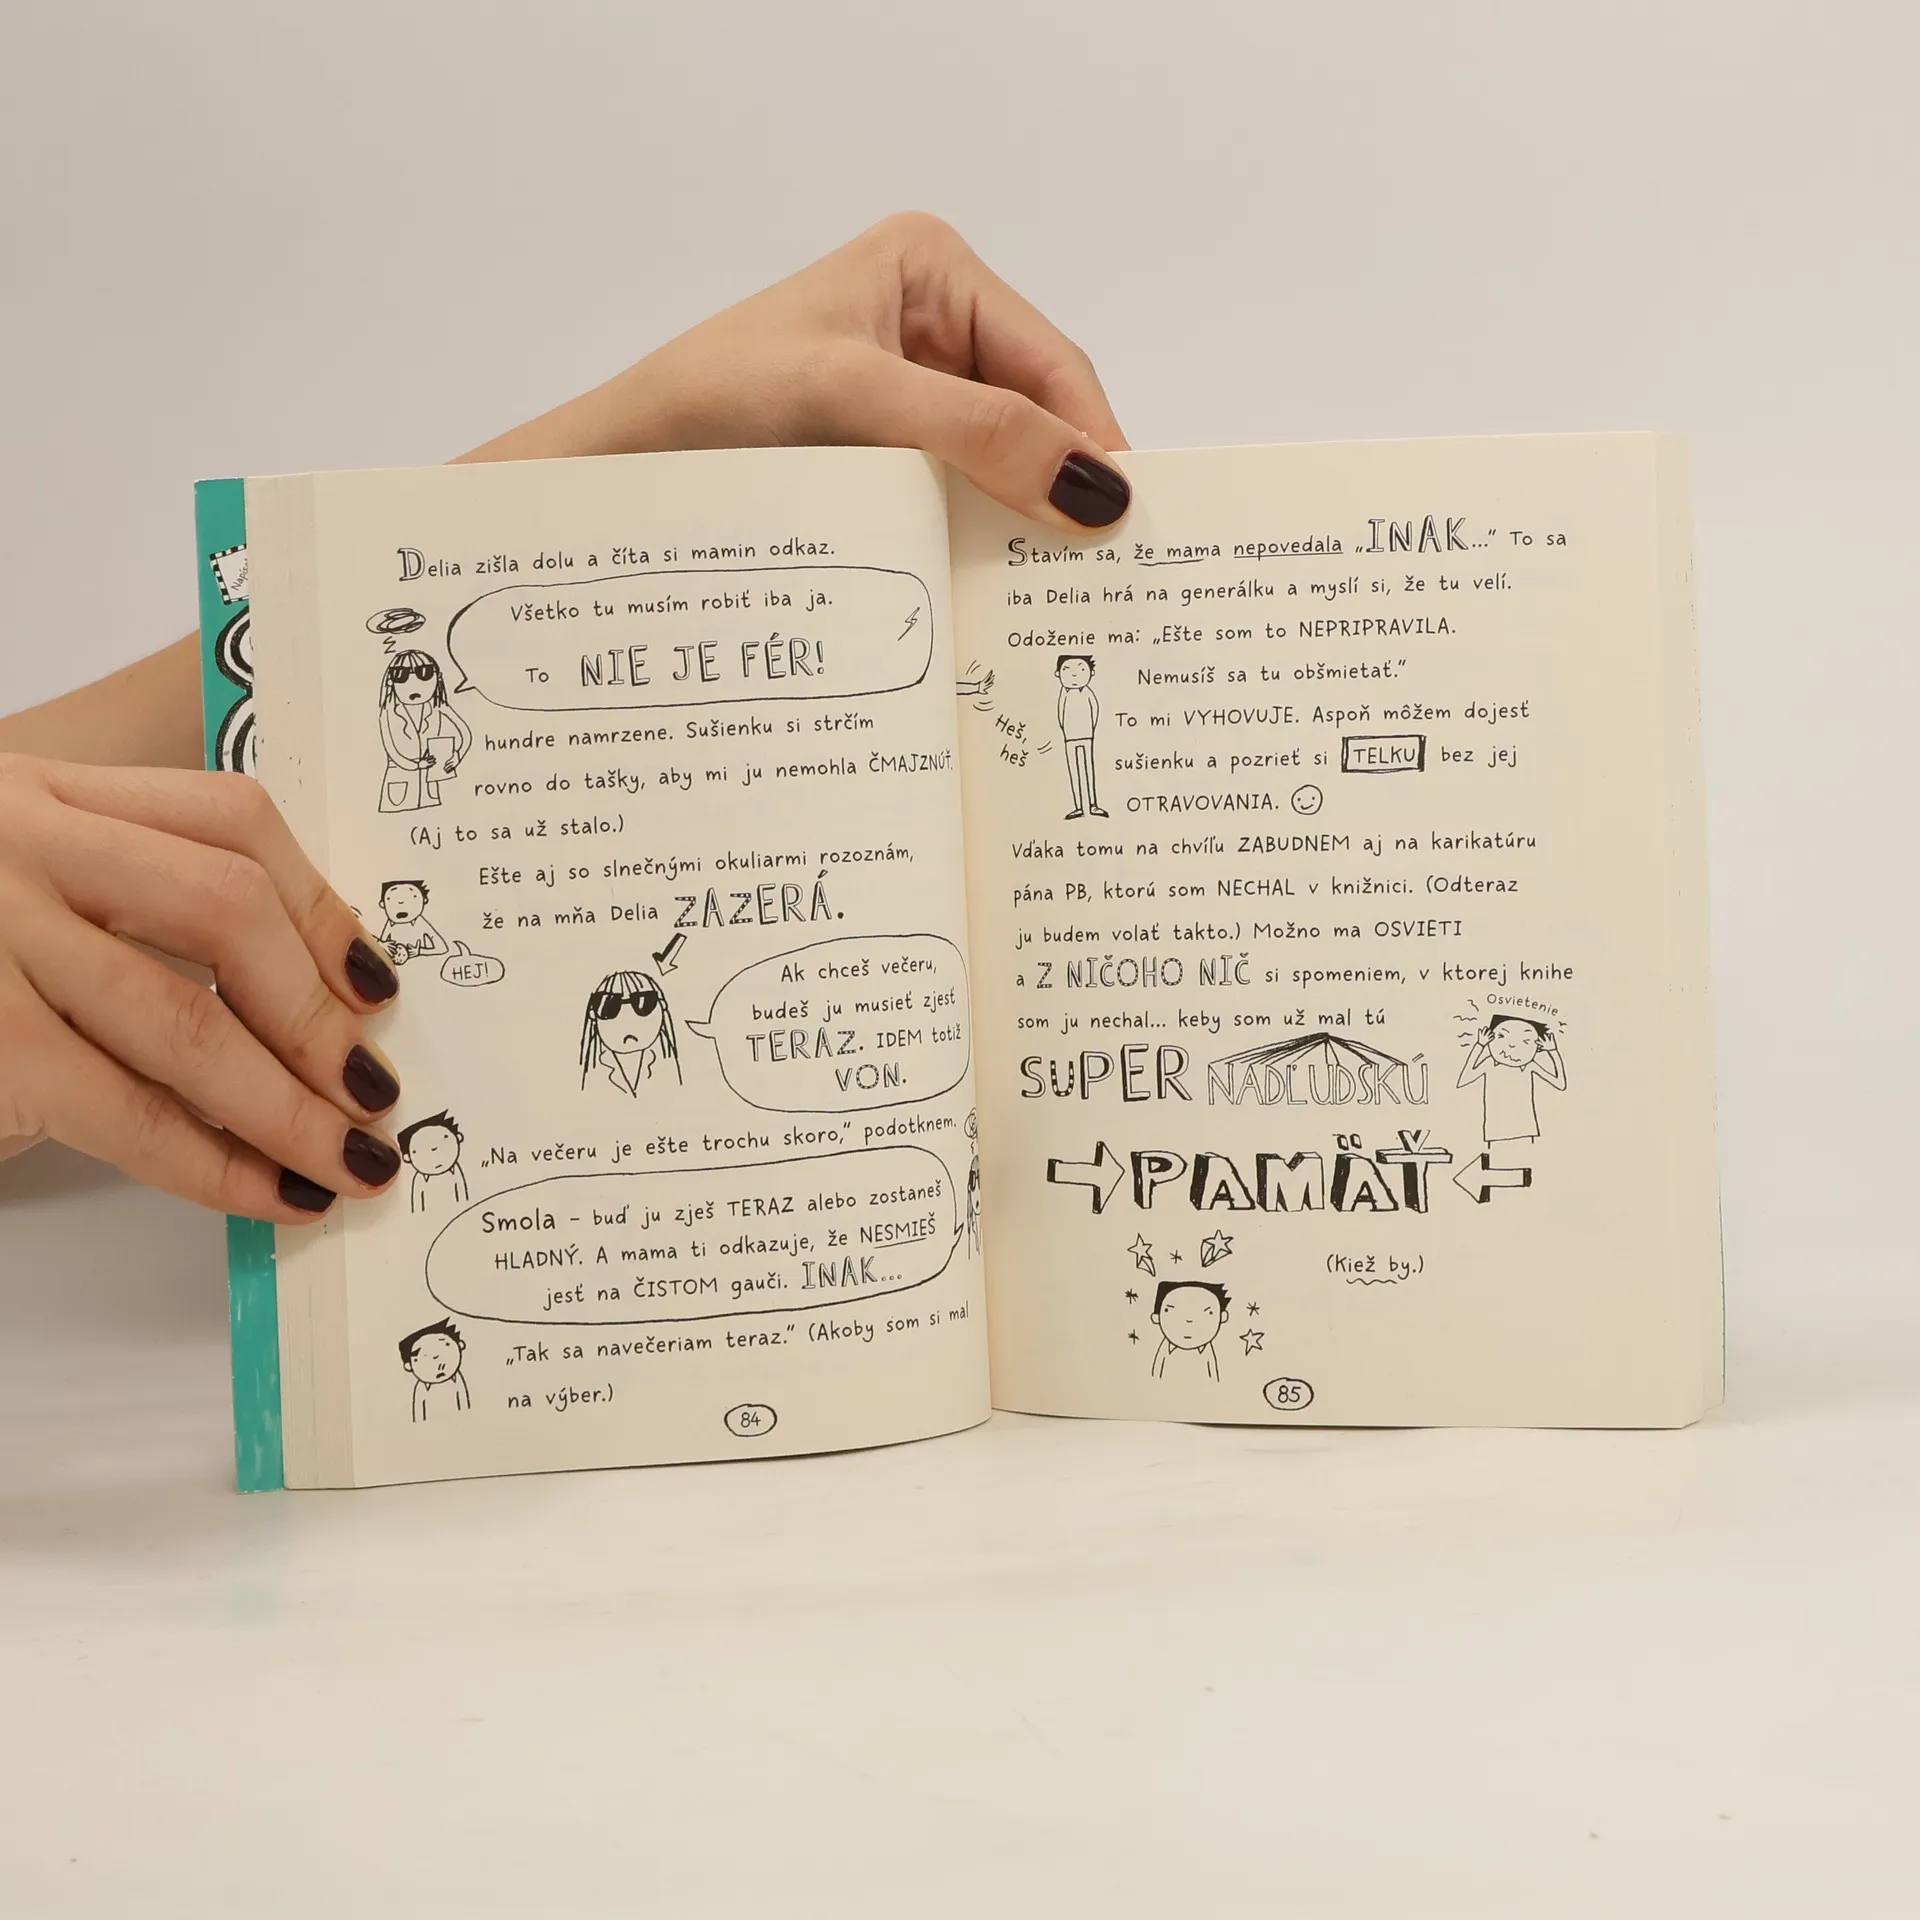 Napíš
Delia zišla dolu a číta si mamin odkaz.
Všetko tu musím robiť iba ja.
To NIE JE FÉR!
hundre namrzene. Sušienku si strčím
rovno do tašky, aby mi ju nemohla ČMAJZNÚŤ.
(Aj to sa už stalo.)
Ešte aj so slnečnými okuliarmi rozoznám,
že na mňa Delia ZAZERÁ.
HEJ!
Ak chceš večeru,
budeš ju musieť zjesť
TERAZ. IDEM totiž
VON.
„Na večeru je ešte trochu skoro,“ podotknem.
Smola – buď ju zješ TERAZ alebo zostaneš
HLADNÝ. A mama ti odkazuje, že NESMIEŠ
jesť na ČISTOM gauči. INAK...
„Tak sa navečeriam teraz.“ (Akoby som si mal
na výber.)
84
Stavím sa, že mama nepovedala „INAK...“ To sa
iba Delia hrá na generálku a myslí si, že tu velí.
Odoženie ma: „Ešte som to NEPRIPRAVILA.
Nemusíš sa tu obšmietať.“
Heš,
heš
To mi VYHOVUJE. Aspoň môžem dojesť
sušienku a pozrieť si TELKU bez jej
OTRAVOVANIA.
Vďaka tomu na chvíľu ZABUDNEM aj na karikatúru
pána PB, ktorú som NECHAL v knižnici. (Odteraz
ju budem volať takto.) Možno ma OSVIETI
a Z NIČOHO NIČ si spomeniem, v ktorej knihe
som ju nechal... keby som už mal tú
Osvietenie
SUPER NADĽUDSKÚ
PAMÄŤ
(Kiež by.)
85